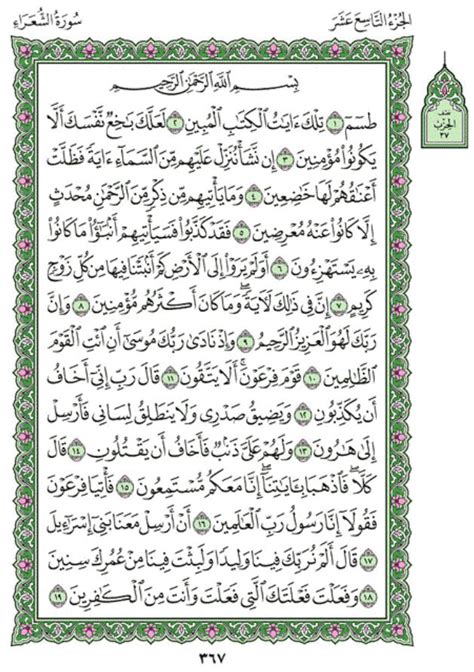 الجزء التاسع عشر
سورة الشعراء
نصف
الحزب
٣٧
بِسْمِ ٱللَّهِ ٱلرَّحْمَٰنِ ٱلرَّحِيمِ
طسٓمٓ ١ تِلْكَ ءَايَٰتُ ٱلْكِتَٰبِ ٱلْمُبِينِ ٢ لَعَلَّكَ بَٰخِعٌ نَّفْسَكَ أَلَّا
يَكُونُوا۟ مُؤْمِنِينَ ٣ إِن نَّشَأْ نُنَزِّلْ عَلَيْهِم مِّنَ ٱلسَّمَآءِ ءَايَةً فَظَلَّتْ
أَعْنَٰقُهُمْ لَهَا خَٰضِعِينَ ٤ وَمَا يَأْتِيهِم مِّن ذِكْرٍ مِّنَ ٱلرَّحْمَٰنِ مُحْدَثٍ
إِلَّا كَانُوا۟ عَنْهُ مُعْرِضِينَ ٥ فَقَدْ كَذَّبُوا۟ فَسَيَأْتِيهِمْ أَنۢبَٰٓؤُا۟ مَا كَانُوا۟
بِهِۦ يَسْتَهْزِءُونَ ٦ أَوَلَمْ يَرَوْا۟ إِلَى ٱلْأَرْضِ كَمْ أَنۢبَتْنَا فِيهَا مِن كُلِّ زَوْجٍ
كَرِيمٍ ٧ إِنَّ فِى ذَٰلِكَ لَءَايَةً ۖ وَمَا كَانَ أَكْثَرُهُم مُّؤْمِنِينَ ٨ وَإِنَّ
رَبَّكَ لَهُوَ ٱلْعَزِيزُ ٱلرَّحِيمُ ٩ وَإِذْ نَادَىٰ رَبُّكَ مُوسَىٰٓ أَنِ ٱئْتِ ٱلْقَوْمَ
ٱلظَّٰلِمِينَ ١٠ قَوْمَ فِرْعَوْنَ ۚ أَلَا يَتَّقُونَ ١١ قَالَ رَبِّ إِنِّىٓ أَخَافُ
أَن يُكَذِّبُونِ ١٢ وَيَضِيقُ صَدْرِى وَلَا يَنطَلِقُ لِسَانِى فَأَرْسِلْ
إِلَىٰ هَٰرُونَ ١٣ وَلَهُمْ عَلَىَّ ذَنۢبٌ فَأَخَافُ أَن يَقْتُلُونِ ١٤ قَالَ
كَلَّا ۖ فَٱذْهَبَا بِـَٔايَٰتِنَآ ۖ إِنَّا مَعَكُم مُّسْتَمِعُونَ ١٥ فَأْتِيَا فِرْعَوْنَ
فَقُولَآ إِنَّا رَسُولُ رَبِّ ٱلْعَٰلَمِينَ ١٦ أَنْ أَرْسِلْ مَعَنَا بَنِىٓ إِسْرَٰٓءِيلَ
١٧ قَالَ أَلَمْ نُرَبِّكَ فِينَا وَلِيدًا وَلَبِثْتَ فِينَا مِنْ عُمُرِكَ سِنِينَ
١٨ وَفَعَلْتَ فَعْلَتَكَ ٱلَّتِى فَعَلْتَ وَأَنتَ مِنَ ٱلْكَٰفِرِينَ ١٩
٣٦٧